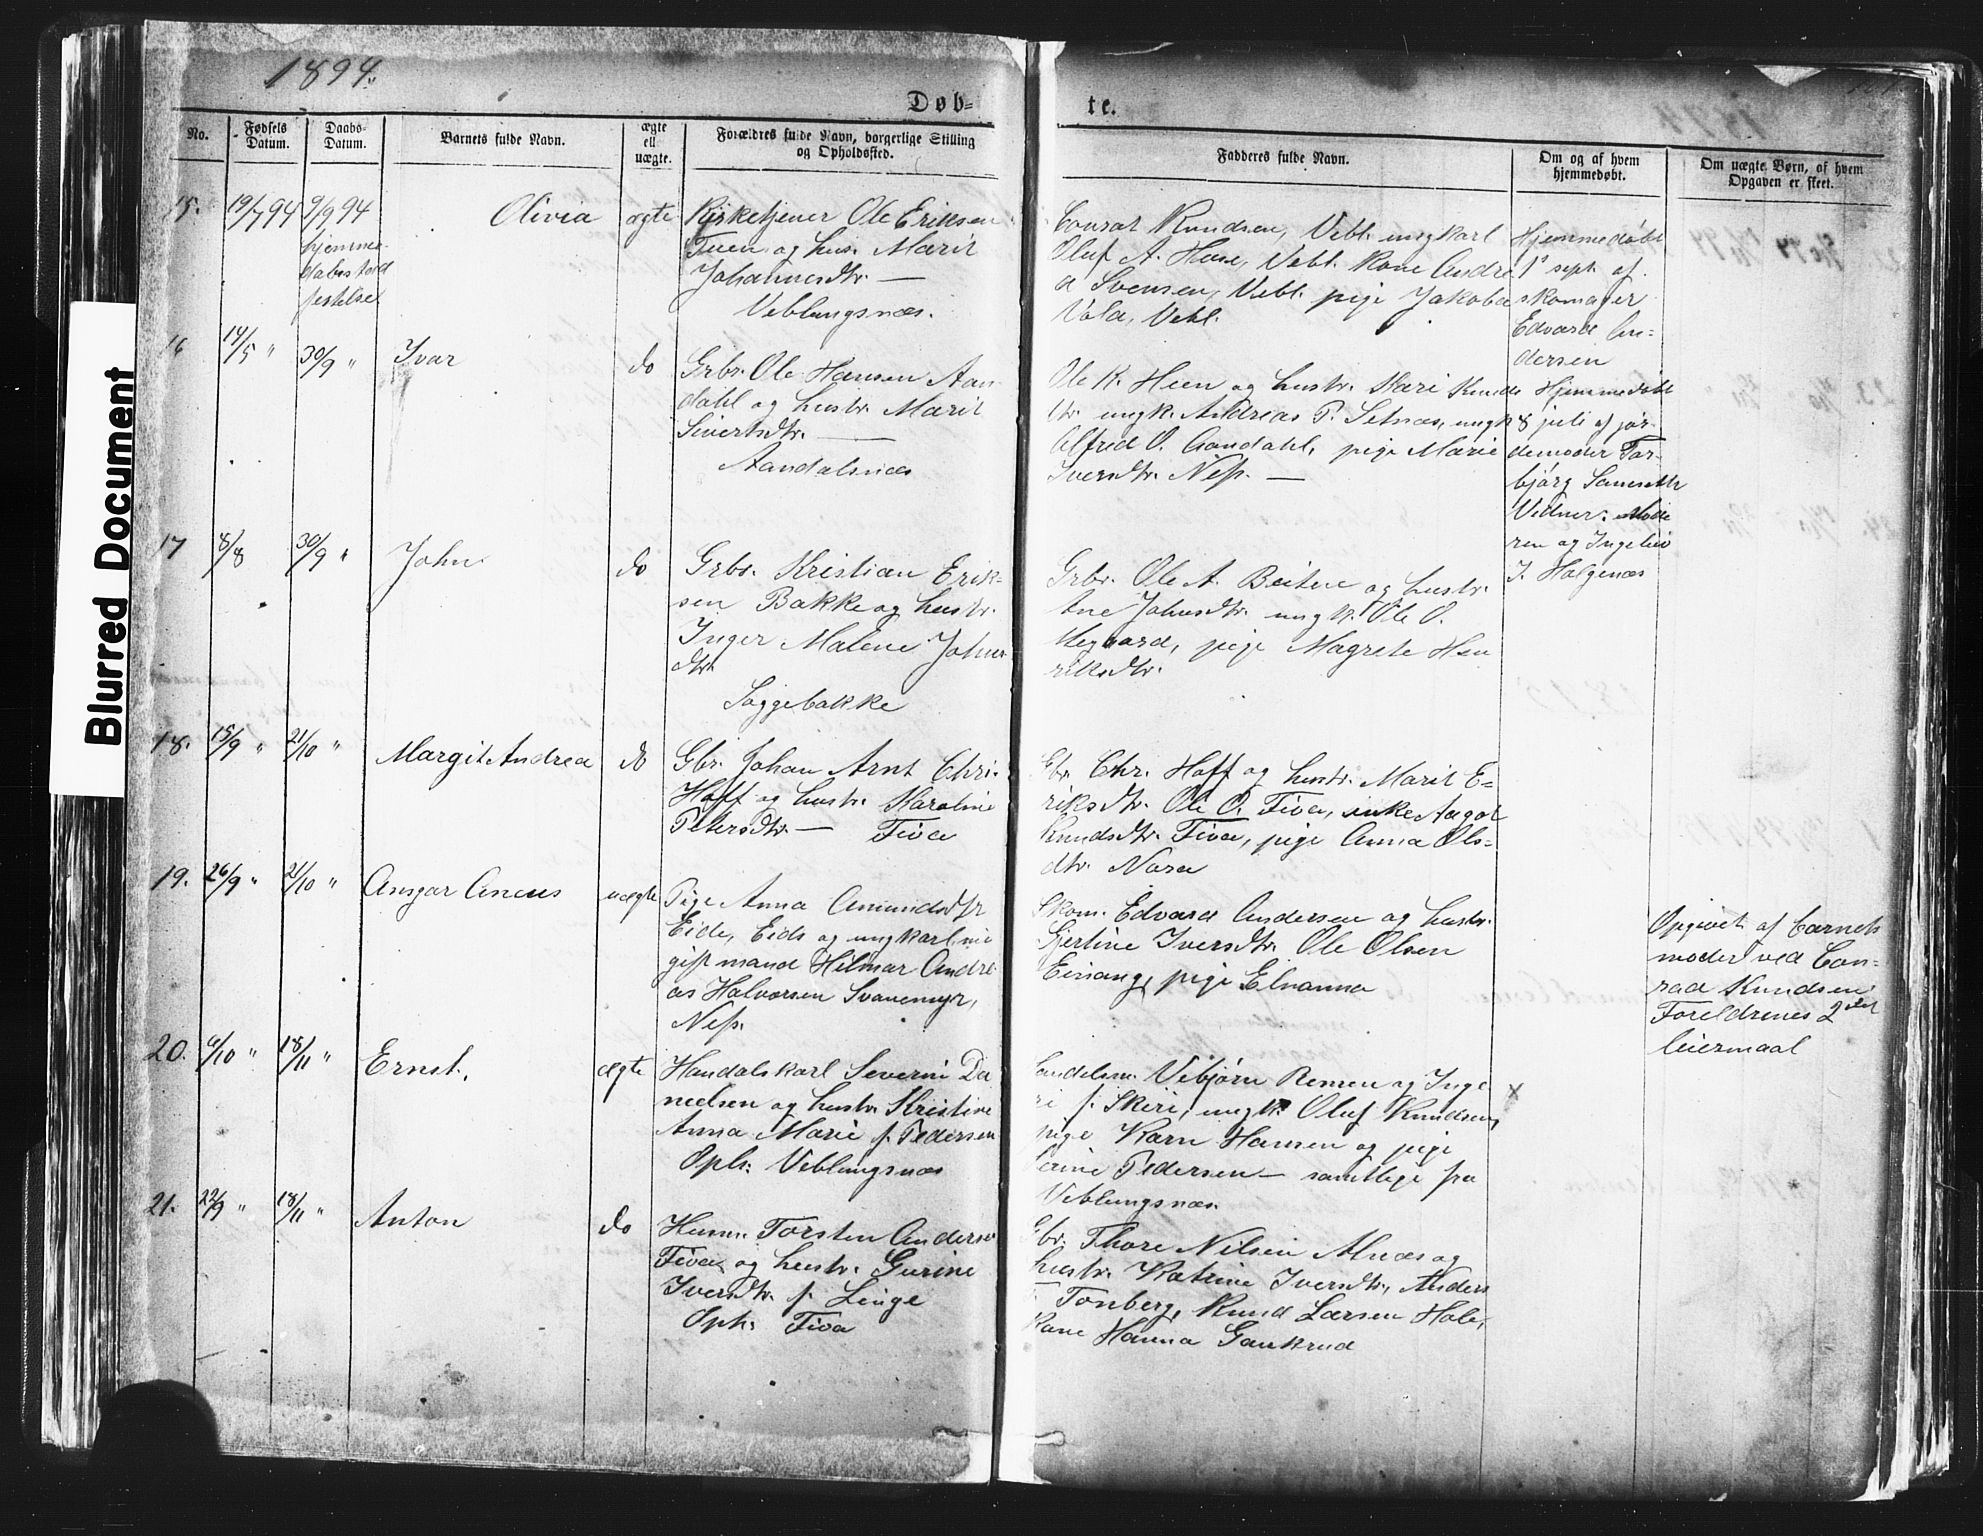 Blurred Document
1894.
Døb-
te.
No.
Fødsels Datum.
Daabs-Datum.
Barnets fulde Navn.
ægte ell uægte.
Forældres fulde Navn, borgerlige Stilling og Opholdssted.
Fadderes fulde Navn.
Om og af hvem hjemmedøbt.
Om uægte Børn, af hvem Opgaven er skeet.
15.
19/7 94
9/9 94
hjemme-
dabsstad
festelse
Olivia
ægte
Kirketjener Ole Eriksen
Tuen og hus. Marit
Johannesdtr. —
Veblungsnæs.
Conrat Knudsen, Vebl. ungkarl
Oluf A. Huse, Vebl. kone Andre
a Svensen, Vebl. pige Jakoba
Vold, Vebl.
Hjemmedøbt
1 sept. af
skomager
Edvard An-
dersen
16
14/5 "
30/9 "
Ivar
do
Grbr. Ole Hansen Aan
dahl og hustr. Marit
Sivertsdtr. —
Aandalsnæs
Ole K. Heen og hustr. Kari Knuds
tr. ungk. Andreas P. Setnæs, ungk
Alfred O. Aandahl, pige Marie
Iversdtr. NesS. —
Hjemmedøbt
8 juli af jor-
demoder Tor-
bjørg
Vidner: Mode
ren og
J. Halgenæs
17
8/8
30/9 "
John
do
Grbr. Kristian Erik-
sen Bakke og hustr.
Inger Malene Johns-
dtr.
Soggebakke
Grbr. Ole A. Breiten og hustr.
Ane Johnsdtr. ungk. Ole O.
pige Magrete Hen
riksdtr.
18.
15/9 "
21/10 "
Margit Andrea
do
Gbr. Johan Arnt Chr.
Hoff og hustr. Karoline
Petersdtr. — Fiva
Gbr. Chr. Hoff og hustr. Marit E-
riksdtr. Ole O. Fiva, enke Aagot
Knudsdtr. Fiva, pige Anna Ols-
dtr. Nora
19.
26/9 "
21/10 "
Ansgar
uægte
Pige Anna Amundsdtr
Eide, Eids og ungkarl, nu
gift mand Hilmar Andre
as Halvorsen Svanemyr,
NesS.
Skom. Edvard Andersen og hustr.
Gjertine Iversdtr. Ole Olsen
pige Elnanna
Opgivet af barnets
moder ved Con-
rad Knudsen
Foreldrenes 2det
leiermaal
20.
6/10 "
18/11 "
Ernst.
ægte
Handalskarl Severin Da
neelsen og hustr. Kristine
Anna Marie f. Pedersen
Opls. Veblungsnæs
Handelsm. Vebjørn Remen og Inge
ri f. Skiri, ungk. Oluf Knudsen,
pige Karn Hansen og pige
Pedersen — samtlige fra
Veblungsnæs.
x
21.
22/9 "
18/11 "
Anton
do
Husm. Torsten Anderse
Fiva og hustr. Gurine
Iversdtr. f. Linge
Oph. Fiva
Gbr. Thore Nilsen Alnæs og
hustr. Katrine Iversdtr., Anders
Tonberg, Knud Larsen Hole,
kone Hanna Gaukrud